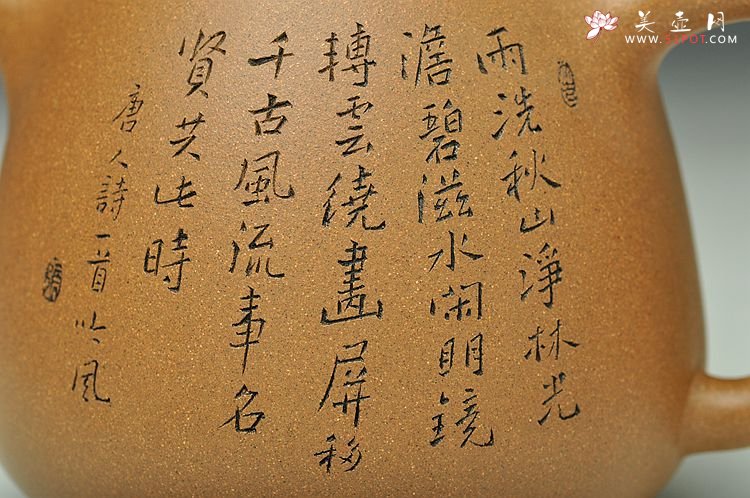 雨洗秋山淨林光
澹碧滋水閑明鏡
轉雲繞畫屏移
千古風流事名
賢共此時
唐人詩一首吟風
美壶网
WWW.51POT.COM